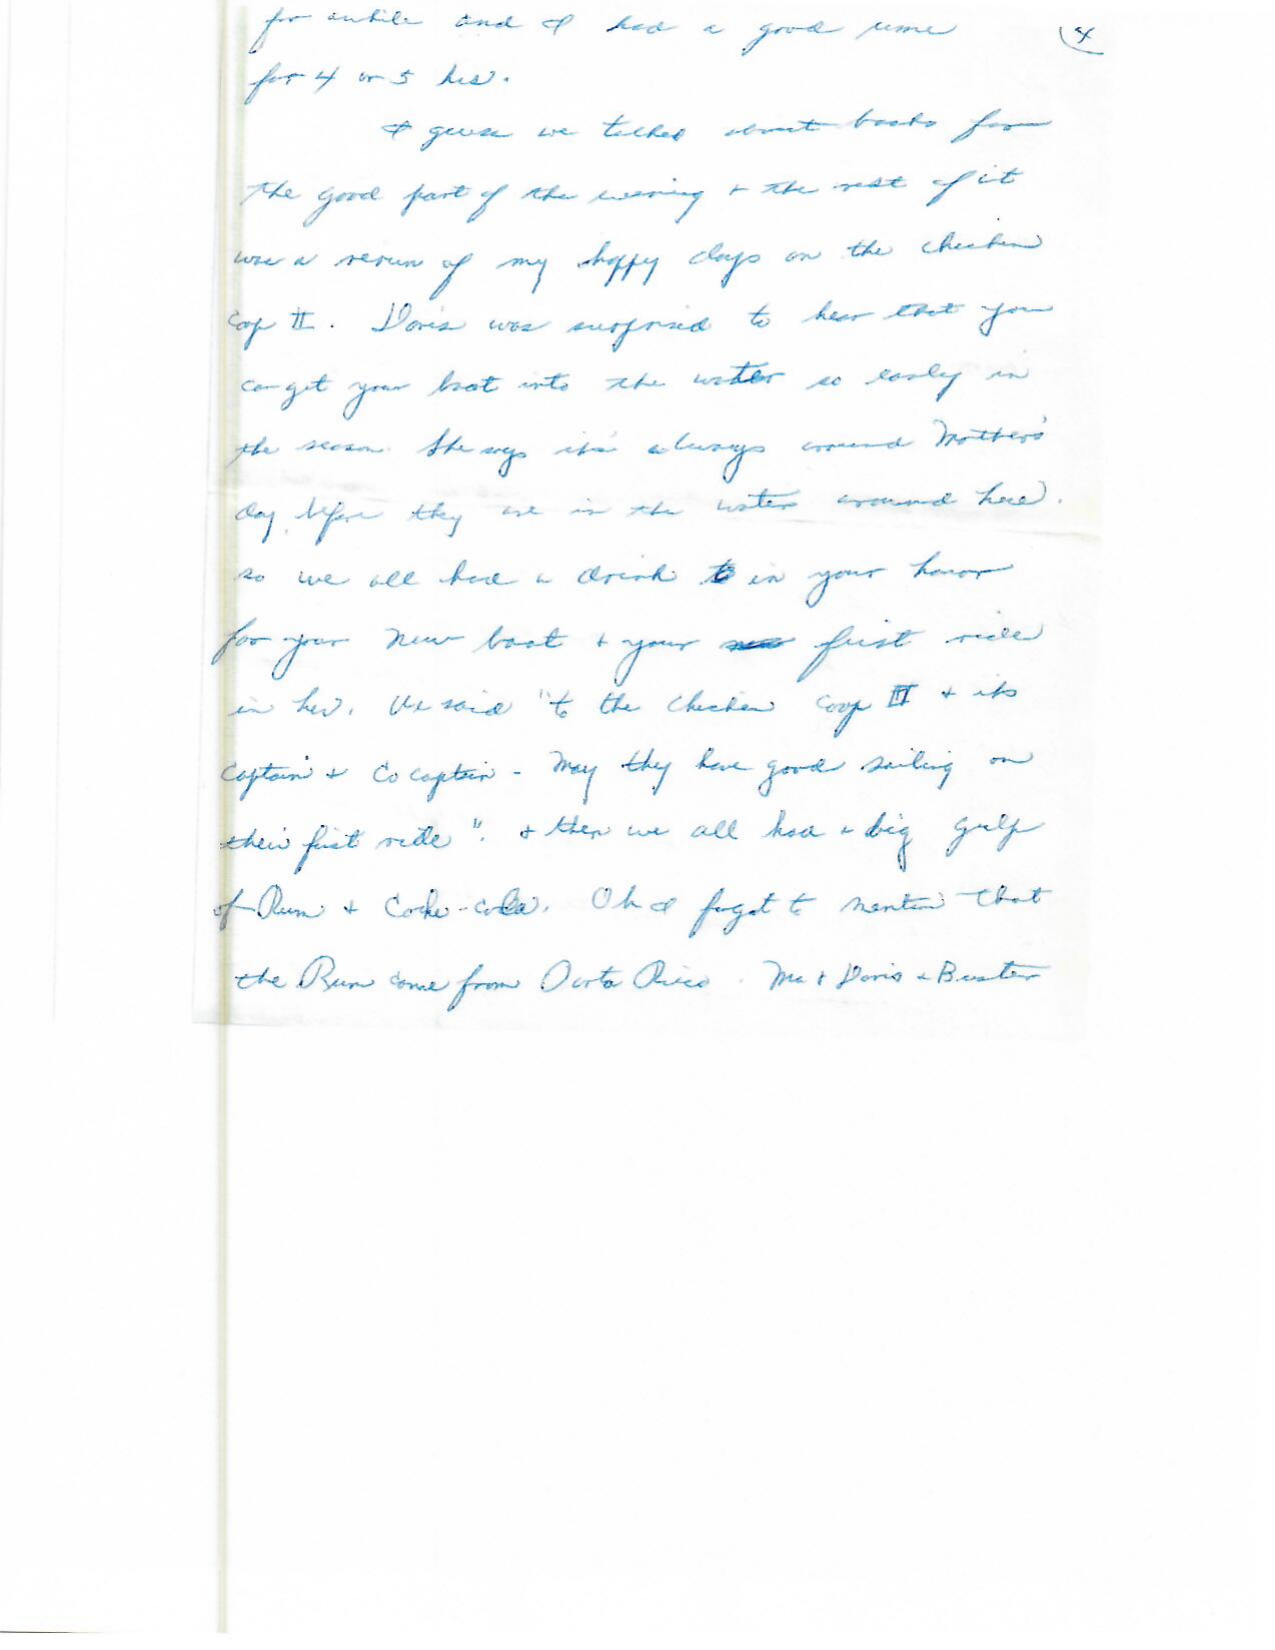 for awhile and I had a good time
4
for 4 or 5 hrs.
I guess we talked about boats for
the good part of the evening + the rest of it
was a rerun of my happy days on the chicken
coop II. Doris was surprised to hear that you
can get your boat into the water so early in
the season. She says it's always around Mother's
day before they are in the water around here.
so we all had a drink to in your honor
for your new boat + your first ride
in her. We said "to the chicken coop III + its
captain + Co captain - May they have good sailing on
their first ride". + then we all had a big gulp
of Rum + Coke-cola. Oh I forgot to mention that
the Rum come from Porto Rico. Me + Doris + Buster